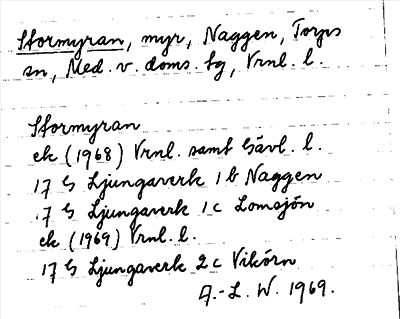 Stormyran, myr, Naggen, Torps
sn, Med. v. doms. tg, Vrnl. l.
Stormyran
ek (1968) Vrnl. samt Gävl. l.
17 G Ljungaverk 1 b Naggen
17 G Ljungaverk 1 c Lomsjön
ek (1969) Vrnl. l.
17 G Ljungaverk 2 c Vikörn
A.-L. W. 1969.